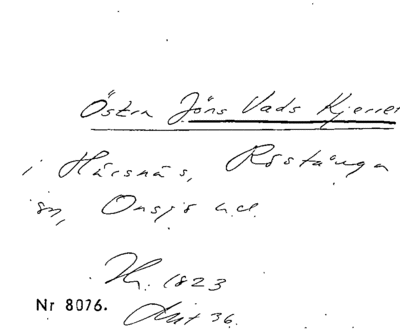 Östra Jöns Vads Kjerret
i Härsnäs, Röstånga
sn, Onsjö hd.
Hr. 1823
Nr 8076. Akt 36.